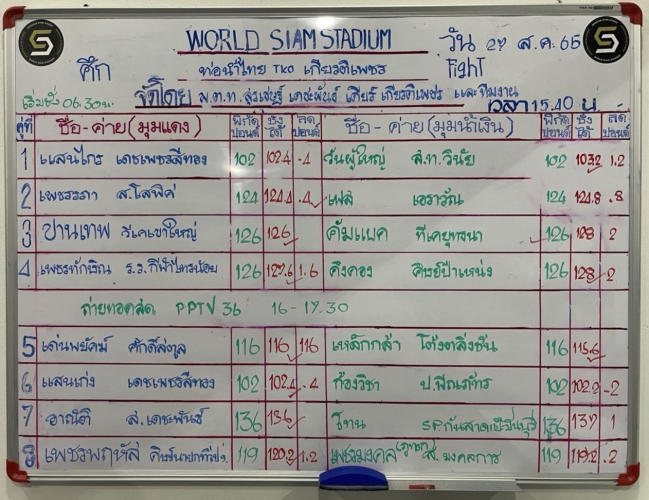 WORLD SIAM STADIUM
วัน 27 ส.ค. 65
ศึก ท่อน้ำไทย TKO เกียรติเพชร FighT
เริ่มชั่ง 06.30น. จัดโดย พ.ต.ท. เกียรติเพชร และทีมงาน เวลา 15.40 น.
คู่ที่ ชื่อ-ค่าย (มุมแดง) พิกัด ปอนด์ ชั่ง ได้ ลด ปอนด์ ชื่อ-ค่าย (มุมน้ำเงิน) พิกัด ปอนด์ ชั่ง ได้ ลด ปอนด์
1 แสนไกร เดชเพชรสีทอง 102 102.4 .4 วันผู้ใหญ่ ส.ท.วินัย 102 103.2 1.2
2 เพชรรดา ส.โสพิศ 124 124.4 .4 เฟส เอราวัณ 124 124.8 .8
3 ปานเทพ วีเคเขาใหญ่ 126 126 คัมแบค ทีเคยุทธนา 126 128 2
4 เพชรทักษิณ ร.ร.กีฬาไทรน้อย 126 127.6 1.6 คิงคอง ศิษย์ป๋าเหน่ง 126 128 2
ถ่ายทอดสด PPTV 36 16-17.30
5 เด่นพยัคฆ์ ศักดิ์สตูล 116 116 116 เหล็กกล้า โต้งตลิ่งชัน 116 115.6
6 แสนเก่ง เดชเพชรสีทอง 102 102.4 .4 ก้องวิชา ป.พิณภัทร 102 102.2 .2
7 อาณัติ ส.เดชะพันธ์ 136 136 โทน SPกันสาดปราจีนบุรี 136 137 1
8 เพชรพฤหัส 119 120.2 1.2 เพชรมงคล ส.มงคลการ 119 119.2 .2